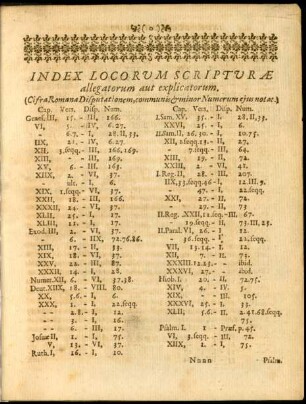 INDEX LOCORUM SCRIPTURÆ
allegatorum aut explicatorum,
(Cifra Romana Disputationem, communis & minor Numerum ejus notat.)
Cap. Vers. Disp. Num.
Genes. III, 15. - III, 166.
VI, 5. - IV, 6.27.
- 6.7. - I, 28. II, 35.
IIX, 21. - IV, 6.27.
XII, 3.seqq. - III, 166, 169.
XIII, - - III, 169.
XV, 6. - III, 163.
XVII, 1. - I, 36.
- 2. - VI, 37.
- ult. - I, 6.
XIX, 1.seqq. - VI, 37.
XXII, 18. - III, 166.
XXXII, 24. - VI, 37.
XLII, 25. - I, 17.
XLIII, 21. - I, 17.
Exod. III, 2. - VI, 37.
- 6. - IIX, 72.76.86.
XIII, 17. - II, 35.
XIX, 18. - VI, 37.
XXV, 22. - III, 87.
XXXII, 14. - I, 28.
Numer. XII, 6. - VI, 37.38.
Deut. XIIX, 18. - VIII. 80.
XX, 5.6. - I, 6.
XXX, 1. - I, 22.seqq.
- 2.8. - I, 12.
- 5. - I, 34.
- 6. - III, 17.
Josuæ II, 1. - I, 75.
V, 13. - VI, 37.
Ruth. I, 16. - I, 20.
Cap. Vers. Disp. Num.
I.Sam. XV, 35. - I, 28. II, 35.
XXVI, 25. - I, 6.
II.Sam. II, 26.30. - I, 10.75.
XII, 2.seqq. 13. - II, 27.
- 7.seqq. - III, 64.
XX, 22. - I, 75.
XXIII, 2. - VI, 41.
I.Reg. II, 28. - III, 207.
IIX, 33.seqq. 46 - I, 12. III, 9.
- 47. - I, 22.seqq.
XXI, 27. - II, 72.
- 29. - I, 73.
II.Reg. XXII, 12.seqq. - III. 67.
- 19.seqq. - II, 73. III, 25.
II.Paral. VI, 26. - I, 12.
- 36.seqq. - I, 22.seqq.
VII, 13.14. - I, 12.
XII, 7. - II, 73.
XXXIII, 12.23. - II, ibid.
XXXVI, 27. - II, ibid.
Hiob. I, 20. - II, 72.75.
XIV, 4. - IV, 5.
XIX, - III, 105.
XXXIV, 25. - I, 53.
XLII, 5.6. - II, 41.68.seqq.
Psalm. I. 1 - Præf. p. 45.
VI, 3.seqq. - II, 72.
XIIX, 1. - I, 75.
Nnnn Psalm.